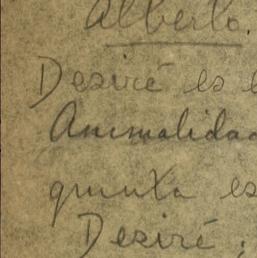 Alberto.
Desiré es e
Animalidad
quinta es
Desiré;